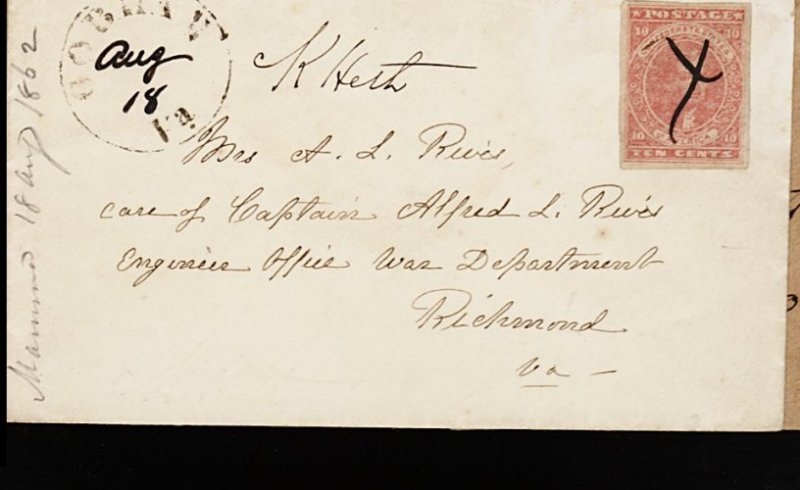 Aug
18
Va
POSTAGE
10 10
10 10
TEN CENTS
Mrs A. L. Rives,
care of Captain Alfred L. Rives
Engineer Office War Department
Richmond
Va -
Mamma 18 Aug 1862